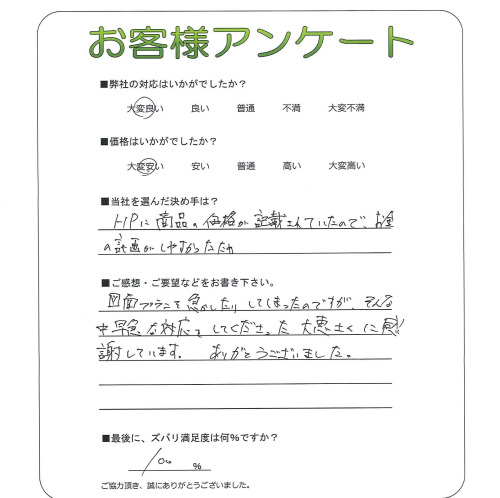 お客様アンケート
■弊社の対応はいかがでしたか？
大変良い 良い 普通 不満 大変不満
■価格はいかがでしたか？
大変安い 安い 普通 高い 大変高い
■当社を選んだ決め手は？
HPに商品の価格が記載されていたので、お金
の計画がしやすかったため
■ご感想・ご要望などをお書き下さい。
図面プランを急がしたりしてしまったのですが、そんな
中早急な対応をしてくださった 大恵さんに感
謝しています。 ありがとうございました。
■最後に、ズバリ満足度は何%ですか？
100 %
ご協力頂き、誠にありがとうございました。